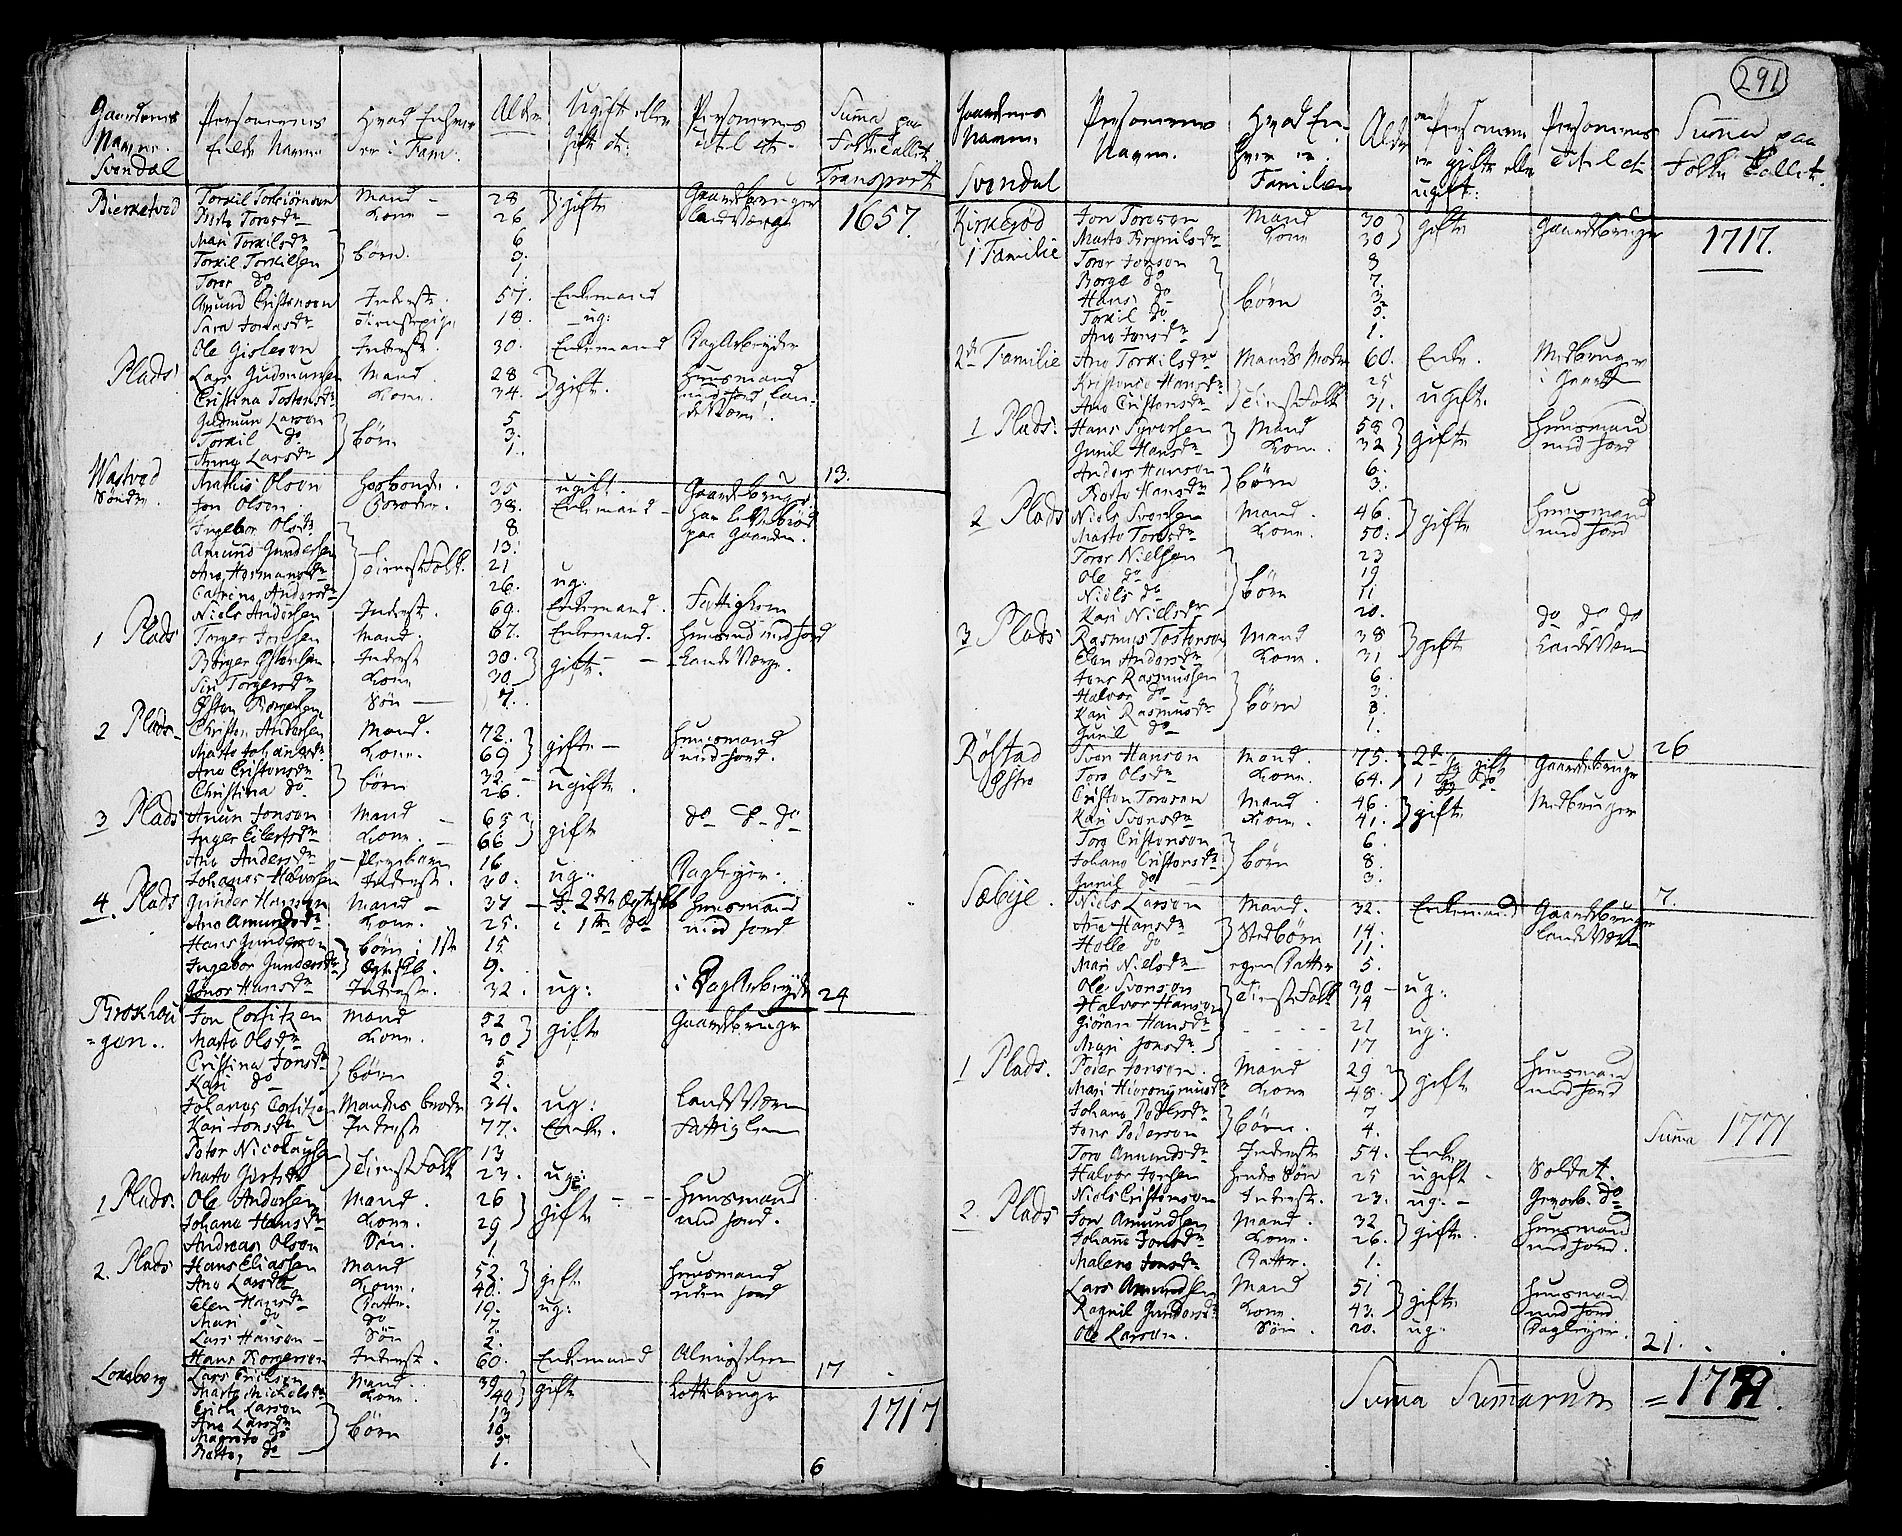 Gaardenes Navne. Svendal | Personernes fulde Navne | Hvad Enhver er i Fam. | Alder | Ugift eller Gift etc: | Personernes titel etc. | Summa paa Folke Tallet.
Transport
1657.
Bierketved | Torkil Torbiørnsen | Mand | 28 | gifte | Gaardbruger
Torosdr | Kone | 26 | landværge
Mari Torkilsdr | 6
Torkil Torkilsen | børn. | 3.
Toror do | 1.
Amund Cristensen | Inderste. | 57. | Enkemand
Sara Jonasdr | tienestepige | 18. | ug:
Ole Gislesen | Inderste. | 30. | Enkemand | Dag Arbeyder
Plads | Lars Gudmunsen | Mand. | 28 | gift. | Huusmand
Cristina Tostensdr | Kone. | 34. | med jord lan-
deværn.
Gudmun Larsen | 5
Torkil do | børn | 3.
Anne Larsdr | 1.
13.
Wastved Søndre. | Mathis Olsen | Hosbonde. | 35 | ugift. | Gaardbruger
Jon Olsen | Broder. | 38. | Enkemand
Ingebor Olsdr | 8 | paa Gaarden.
Amund Gundersen | 13.
Ane Hermansdr | tienestfolk. | 21
Catrine Andersdr | 26. | ug:
Niels Andersen | Inderst. | 69. | Enkemand. | Fattiglem
1 Plads | Torger Jensen | Mand. | 67. | Enkemand. | Huusmd med Jord
Børger Østensen | Inderst | 30. | gift. | Lands Værge.
Siri Torgersdr | Kone | 30.
Østen Børgersen | Søn | 7.
2 Plads | Christen Andersen | Mand. | 72. | gifte | Huusmand
Marte Johansdr | Kone. | 69 | med jord.
Ane Cristensdr | børn | 32. | ugifte.
Christina do. | 26.
3 Plads | Anun Jonson | Mand | 65 | gifte | do do do
Inger Eilertsdr | Kone. | 66
Ane Andersdr | Pleyebarn | 16
Johanes Halvorsen | Inderst. | 30. | ug. | Dagleyer.
4. Plads | Gunder Hansen | Mand | 37 | i 2det Egteskb | Huusmand
Ane Amundsdr | Kone. | 25. | i 1te do | med jord
Hans Gunderson | børn i 1ste | 15
Ingebor Gundersdr | Egtesk. | 9.
Gunor Hansdr | Inderste. | 32. | ug: | i Dag Arbeyde | 24
Krokhau-gen. | Jon Corfitzen | Mand | 52 | gifte | Gaardbruger
Marte Olsdr | Kone. | 30
Cristina Jonsdr | børn | 5
Kari do | 2.
Johanes Corfitzen | Mandens broder | 34. | ug: | land Værn
Kari Jonsdr | Inderst | 77. | Enke. | Fattiglem
Peter Nicolaysen | 13
Marte | tienestfolk | 23. | ug:
1 Plads. | Ole Andersen | Mand. | 26 | gifte | Huusmand
Johane Hansdr | Kone. | 29 | med jord.
Andreas Olson | Søn. | 1.
2. Plads | Hans Eliassen | Mand | 52. | gift | Huusmand
Ane Larsdr | Kone. | 40. | uden jord
Elen Hansdr | Datter. | 19. | ug:
Mari do | do | 7.
Lars Hanson | Søn | 2.
Hans Børgerson | Inderst. | 60. | Enkemand | Almisselem | 17
Lonsberg | Lars Erikson | Mand. | 39 | gifte | Lottsbruger
Marte Michelsdr | Kone | 44
Erich Larson | 13
Ane Larsdr | børn | 10
Magrete do | 5
do | 1.
1717
6
291
Gaardenes Navne. Svendal | Personernes Navne. | Hvad En-hver er i Familien | Alder | om Personerne er gifte eller ugift: | Personernes titel etc. | Summa paa Folke Tallet.
1717.
Kirkerød | Jon Toreson | Mand | 30 | gifte | Gaardbruger
1 Familie | Marte Brynilsdr | Kone | 30
Toror Jonson | 8
Borge do | 7.
Hans do | børn | 3.
Torkil do. | 5.
Ane Jonsdr | 1.
2de Familie | Ane Torkilsdr | Mands Moder | 60. | Enke. | Medbruger
Hansdr | 25 | i Gaard
Ane Cristensdr | tienestfolk | 31. | ugift.
1 Plads. | Hans Syversen | Mand | 58 | gifte | Huusmand
Gunil Hansdr | Kone. | 32 | med jord
Anders Hanson | børn | 6.
Hansdr | 3.
2 Plads | Niels Svensen | Mand. | 46. | gifte | Huusmand
Marte Torosdr | Kone. | 50. | med jord
Toror Nielsen | 23
Ole do | børn | 19
Niels do | 11
Kari Nielsdr | 20.
3 Plads | Rasmus Tostenson | Mand | 38 | gift | do do do
Elen Andersdr | Kone. | 31 | Landværn
Jens Rasmussen | 6.
Halvor do | børn | 3.
Kari Rasmusdr | 8.
Gunil do | 1.
26
Røstad Østre | Sven Hanson | Mand. | 75. | 2de gift | Gaardbruger
Toro Olsdr | Kone. | 64. | 1 do
Cristen Toreson | Mand. | 46. | gifte | Medbruger
Kari Svensdr | Kone. | 41.
Tore Cristenson | 6.
Johane Cristensdr | børn | 8.
Gunil do | 3.
7.
Sæbye. | Niels Larson | Mand. | 32. | Enkemand | Gaardbruger
Ane Hansdr | Stedbørn | 14. | landværn
Helle do | 11.
Mari Nielsdr | egen Datter | 5.
Ole Svenson | tienestfolk | 30 | ug:
Halvor Hanson | 14
Giøran Hansdr | 21 | ug:
Mari Jonsdr. | 17
1 Plads. | Peder Jonson. | Mand | 29 | gift | Huusmand
Mari Hieronymusdr | Kone | 48. | med jord
Johane Pedersdr | børn. | 7
Jens Pederson | 4.
Toro Amundsdr | Inderste | 54. | Enke
Halvor | hendes Søn | 25 | ugift. | Soldat.
Niels Cristenson | Inderst. | 23. | ug. | Gevorb. do
2 Plads | Jon Amundsen | Mand. | 32 | gifte | Huusmand
Johane Jonsdr | Kone. | 26. | med jord.
Malene Jonsdr | Datter. | 1.
Lars Amundsen | Mand | 51 | gifte | Huusmand
Ragnil Gundersdr | Kone. | 43. | med jord
Ole Larson. | Søn. | 20. | ug: | Dagleyer.
21.
Suma 1777
Suma Sumarum =